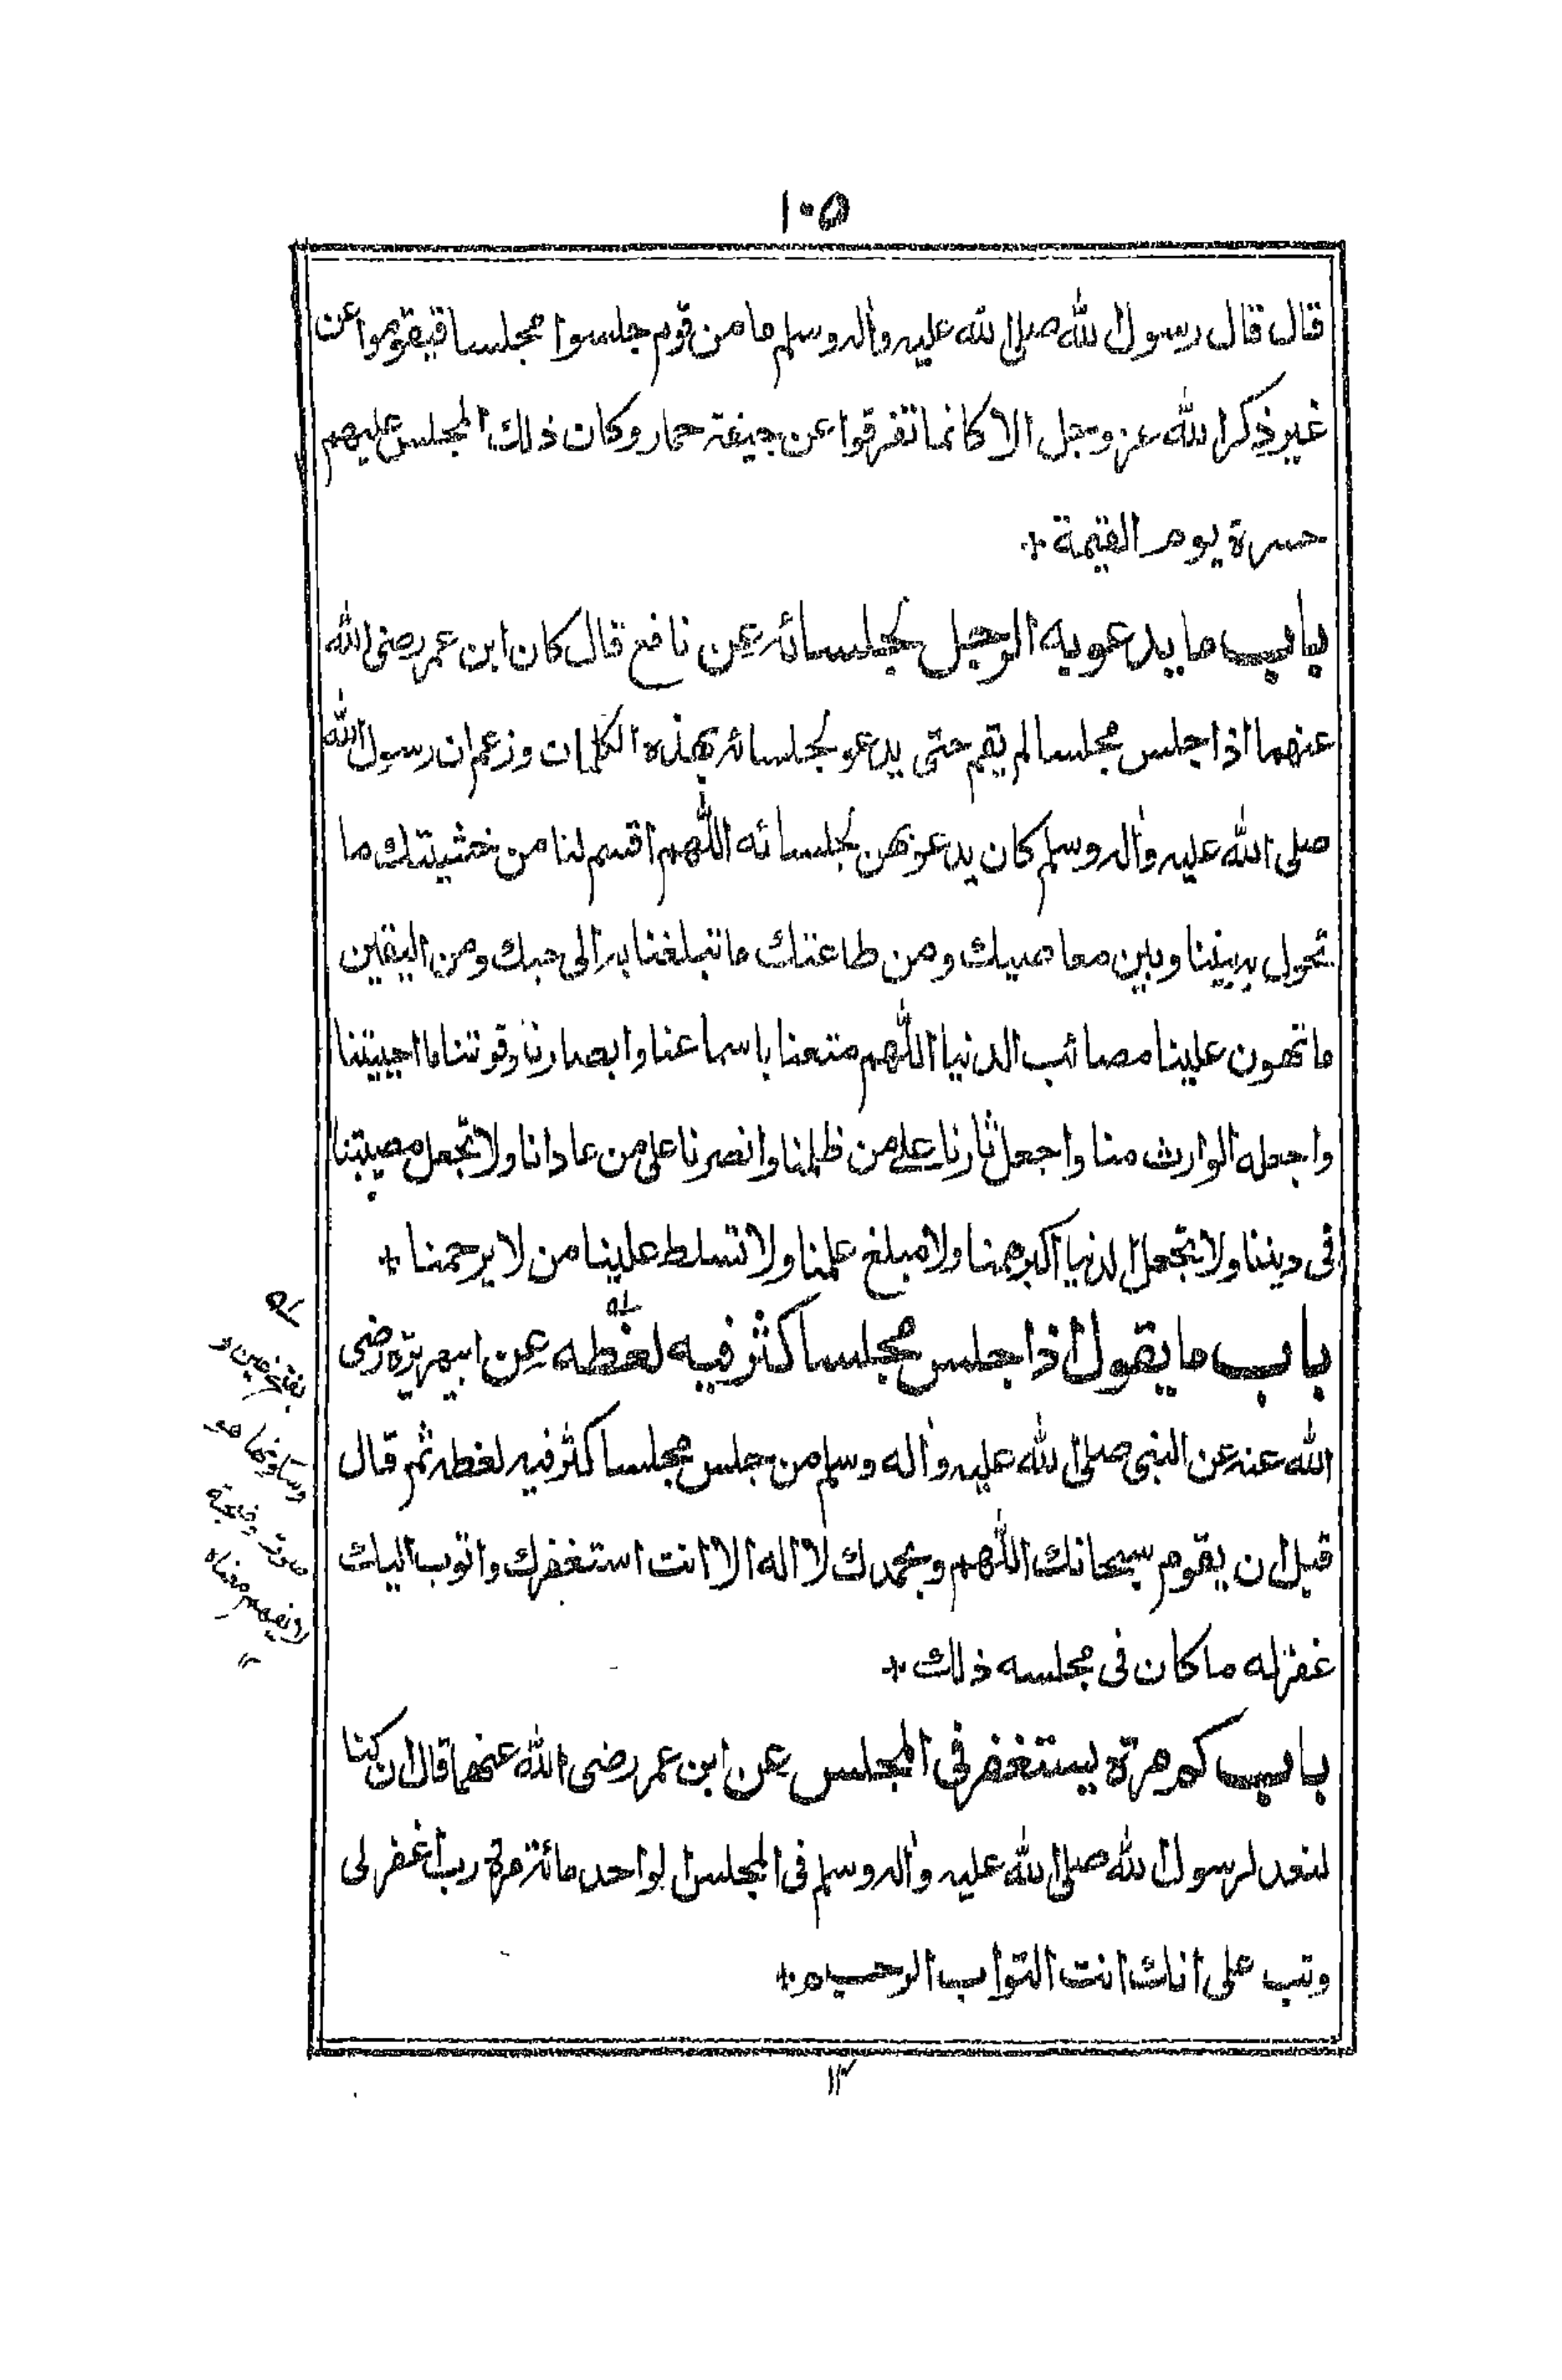 ١٠٥
قال قال رسول الله صلى الله عليه واله وسلم ما من قوم جلسوا مجلسا فيقوموا عن
غير ذكر الله عز وجل الا كانما تفرقوا عن جيفة حمار وكان ذلك المجلس عليهم
حسرة يوم القيمة +
باب ما يدعو به الرجل لجلسائه عن نافع قال كان ابن عمر رضى الله
عنهما اذا جلس مجلسا لم يقم حتى يدعو لجلسائه بهذه الكلمات وزعم ان رسول الله
صلى الله عليه واله وسلم كان يدعو بهن لجلسائه اللهم اقسم لنا من خشيتك ما
تحول به بيننا وبين معاصيك ومن طاعتك ما تبلغنا به الى حبك ومن اليقين
ما تهون علينا مصائب الدنيا اللهم متعنا باسماعنا وابصارنا وقوتنا ما احييتنا
واجعله الوارث منا واجعل ثارنا على من ظلمنا وانصرنا على من عادانا ولا تجعل مصيبتنا
فى ديننا ولا تجعل الدنيا اكبر همنا ولا مبلغ علمنا ولا تسلط علينا من لا يرحمنا +
باب ما يقول اذا جلس مجلسا كثر فيه لغطه عن ابيهريرة رضى
الله عنه عن النبى صلى الله عليه واله وسلم من جلس مجلسا كثر فيه لغطه ثم قال
قبل ان يقوم سبحانك اللهم وبحمدك لا اله الا انت استغفرك واتوب اليك
غفر له ما كان فى مجلسه ذلك +
باب كم مرة يستغفر فى المجلس عن ابن عمر رضى الله عنهما قال ان كنا
لنعد لرسول الله صلى الله عليه واله وسلم فى المجلس الواحد مائة مرة رب اغفر لى
وتب على انك انت التواب الرحيم +
١٢
له
بفتحتين و
صوت وضجة
لا يفهم معناه